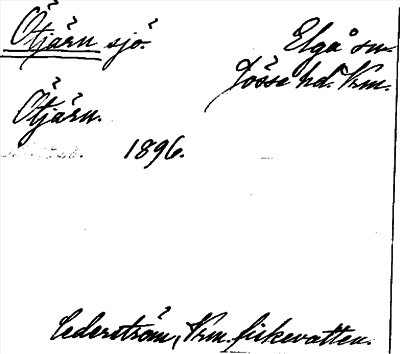 Ötjärn sjö.
Elgå sn.
Jösse hd. Vrm.
Ötjärn.
1896.
Cederström, Vrm. fiskevatten.